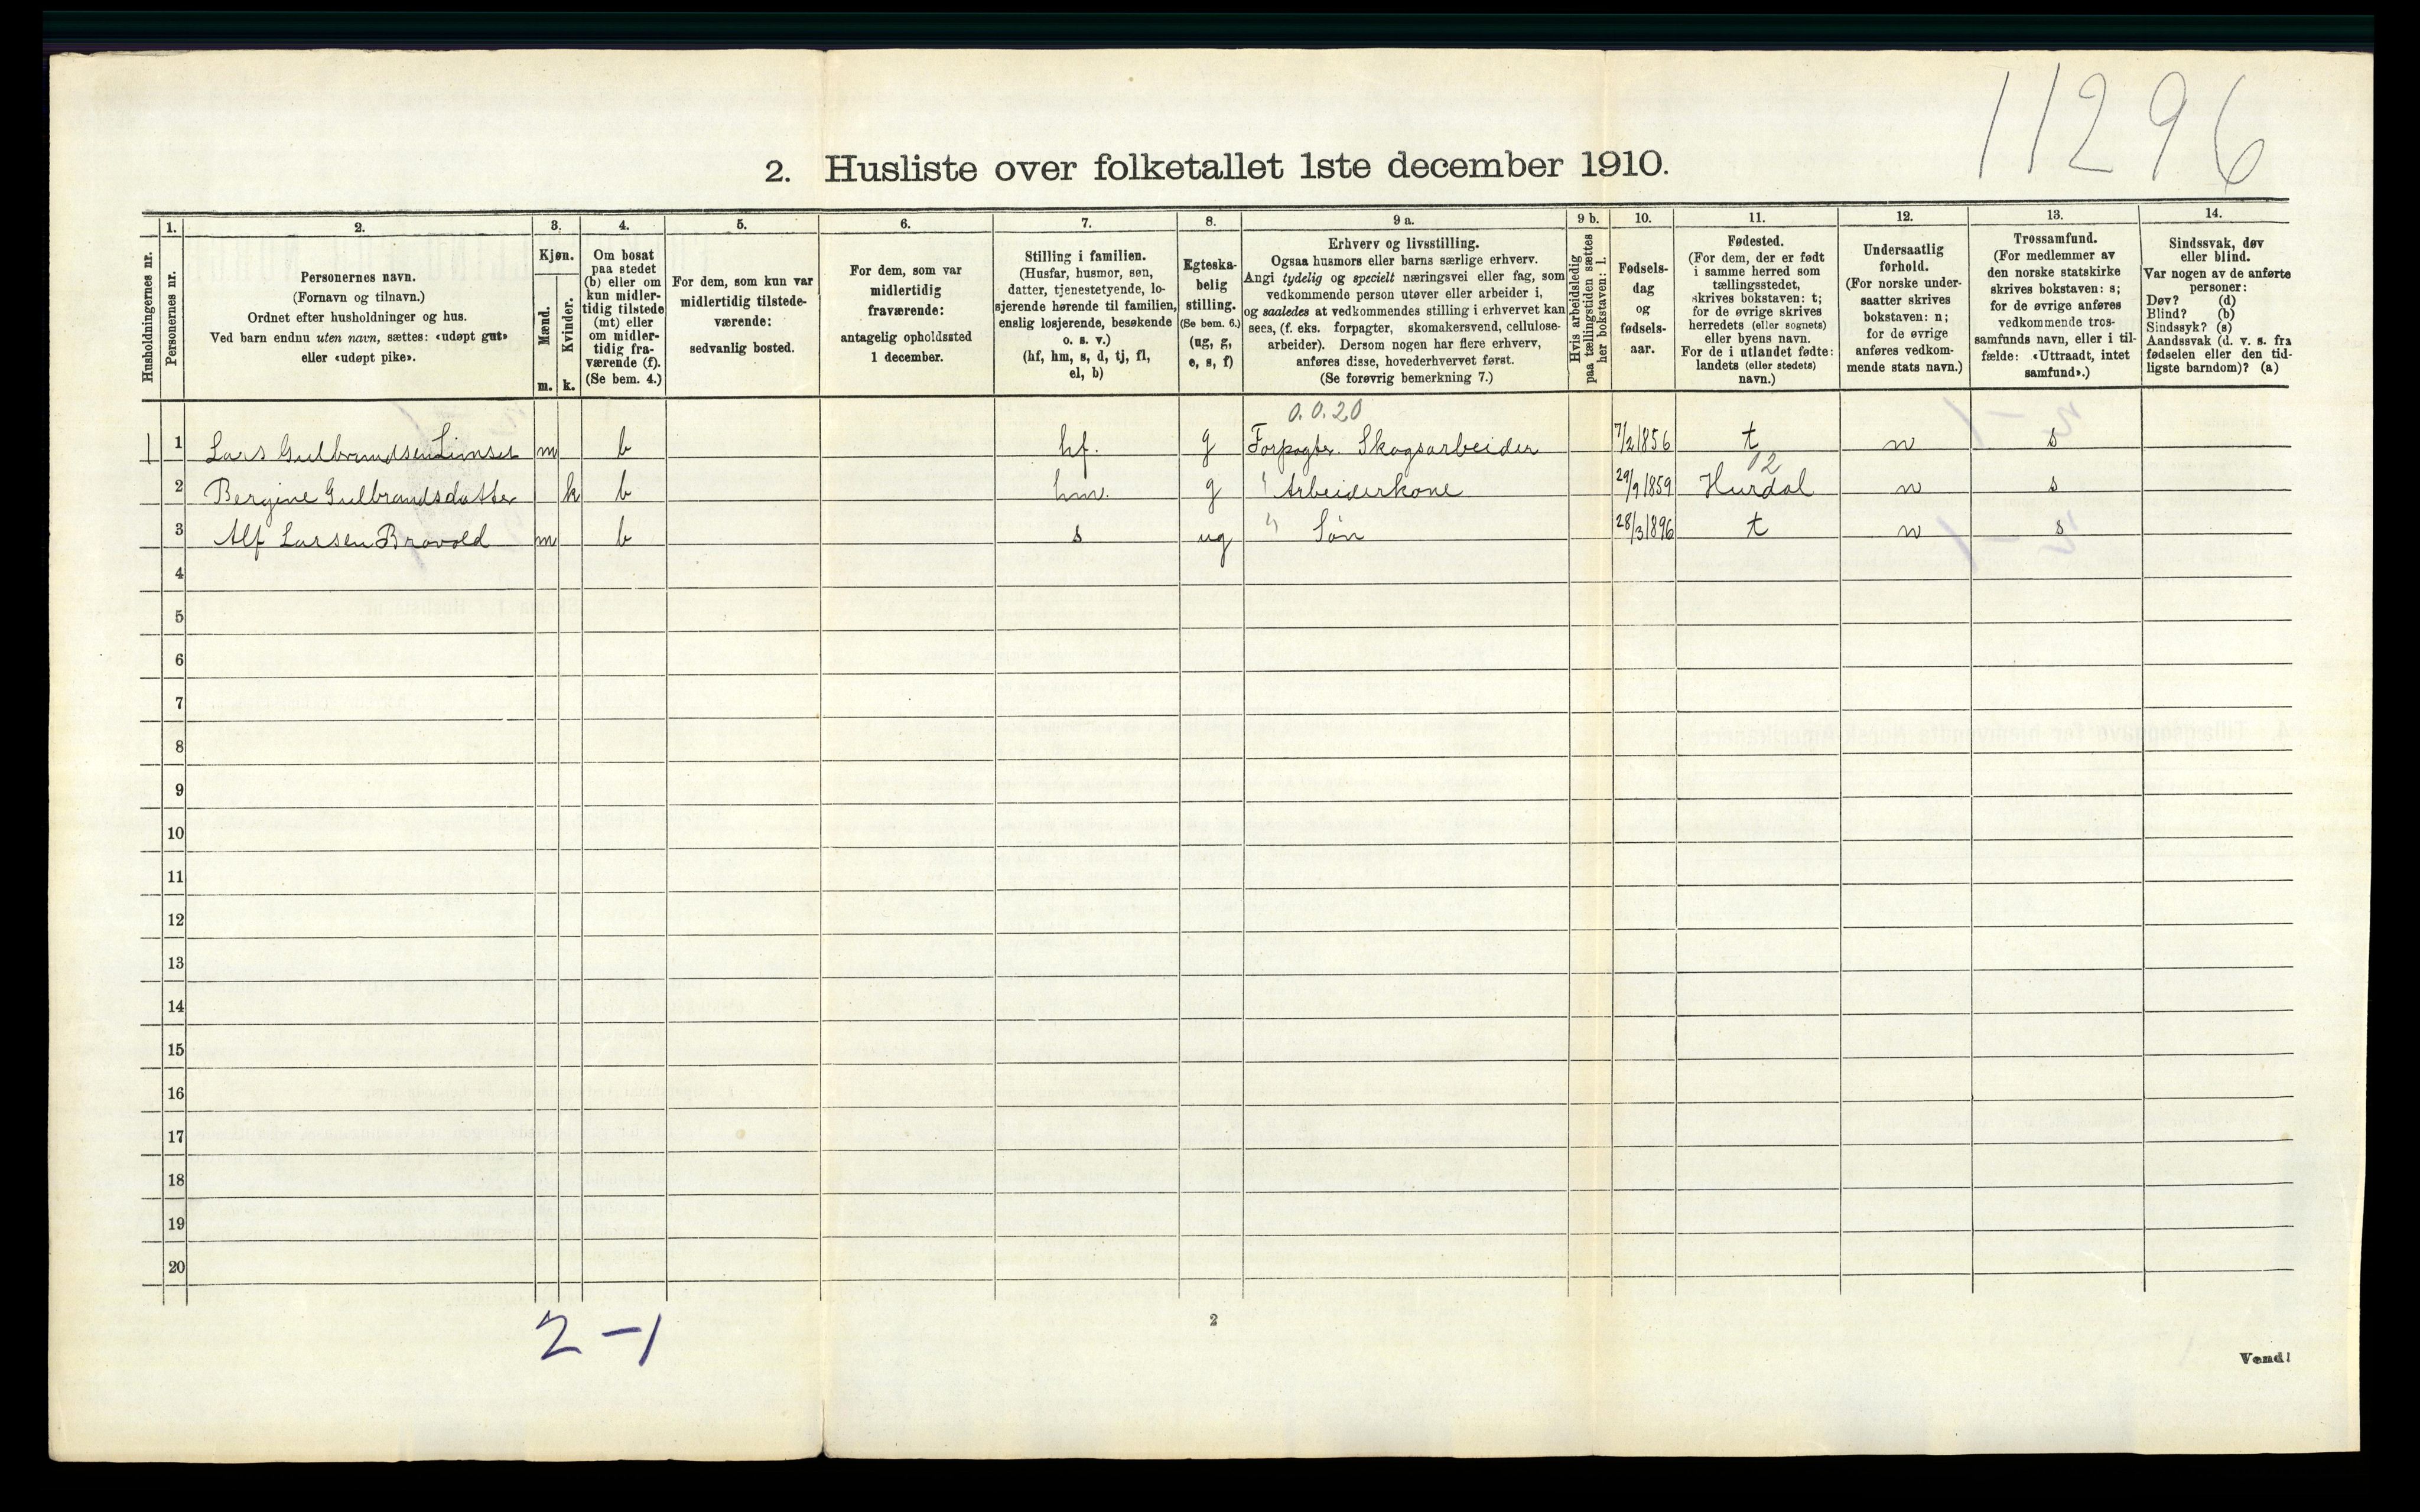 11296
2. Husliste over folketallet 1ste december 1910.
Husholdningernes nr.
1.
Personernes nr.
2.
Personernes navn.
(Fornavn og tilnavn.)
Ordnet efter husholdninger og hus.
Ved barn endnu uten navn, sættes: «udøpt gut»
eller «udøpt pike».
3.
Kjøn.
Mænd.
m.
Kvinder.
k.
4.
Om bosat
paa stedet
(b) eller om
kun midler-
tidig tilstede
(mt) eller
om midler-
tidig fra-
værende (f).
(Se bem. 4.)
5.
For dem, som kun var
midlertidig tilstede-
værende:
sedvanlig bosted.
6.
For dem, som var
midlertidig
fraværende:
antagelig opholdssted
1 december.
7.
Stilling i familien.
(Husfar, husmor, søn,
datter, tjenestetyende, lo-
sjerende hørende til familien,
enslig losjerende, besøkende
o. s. v.)
(hf, hm, s, d, tj, fl,
el, b)
8.
Egteska-
belig
stilling.
(Se bem. 6.)
(ug, g,
e, s, f)
9 a.
Erhverv og livsstilling.
Ogsaa husmors eller barns særlige erhverv.
Angi tydelig og specielt næringsvei eller fag, som
vedkommende person utøver eller arbeider i,
og saaledes at vedkommendes stilling i erhvervet kan
sees, (f. eks. forpagter, skomakersvend, cellulose-
arbeider). Dersom nogen har flere erhverv,
anføres disse, hovederhvervet først.
(Se forøvrig bemerkning 7.)
9 b.
Hvis arbeidsledig
paa tællingstiden sættes
her bokstaven: l.
10.
Fødsels-
dag
og
fødsels-
aar.
11.
Fødested.
(For dem, der er født
i samme herred som
tællingsstedet,
skrives bokstaven: t;
for de øvrige skrives
herredets (eller sognets)
eller byens navn.
For de i utlandet fødte:
landets (eller stedets)
navn.)
12.
Undersaatlig
forhold.
(For norske under-
saatter skrives
bokstaven: n;
for de øvrige
anføres vedkom-
mende stats navn.)
13.
Trossamfund.
(For medlemmer av
den norske statskirke
skrives bokstaven: s;
for de øvrige anføres
vedkommende tros-
samfunds navn, eller i til-
fælde: «Uttraadt, intet
samfund».)
14.
Sindssvak, døv
eller blind.
Var nogen av de anførte
personer:
Døv? (d)
Blind? (b)
Sindssyk? (s)
Aandssvak (d. v. s. fra
fødselen eller den tid-
ligste barndom)? (a)
0.0.20
1 1 Lars Gulbrandsen Limset m b hf. g Forpagter. Skogsarbeider 7/2 1856 t n s
02
2 Bergine Gulbrandsdatter k b hm. g " Arbeiderkone 29/9 1859 Hurdal n s
3 Alf Larsen Bravold m b s ug " Søn 28/3 1896 t n s
4
5
6
7
8
9
10
11
12
13
14
15
16
17
18
19
20
2-1
2
Vend!